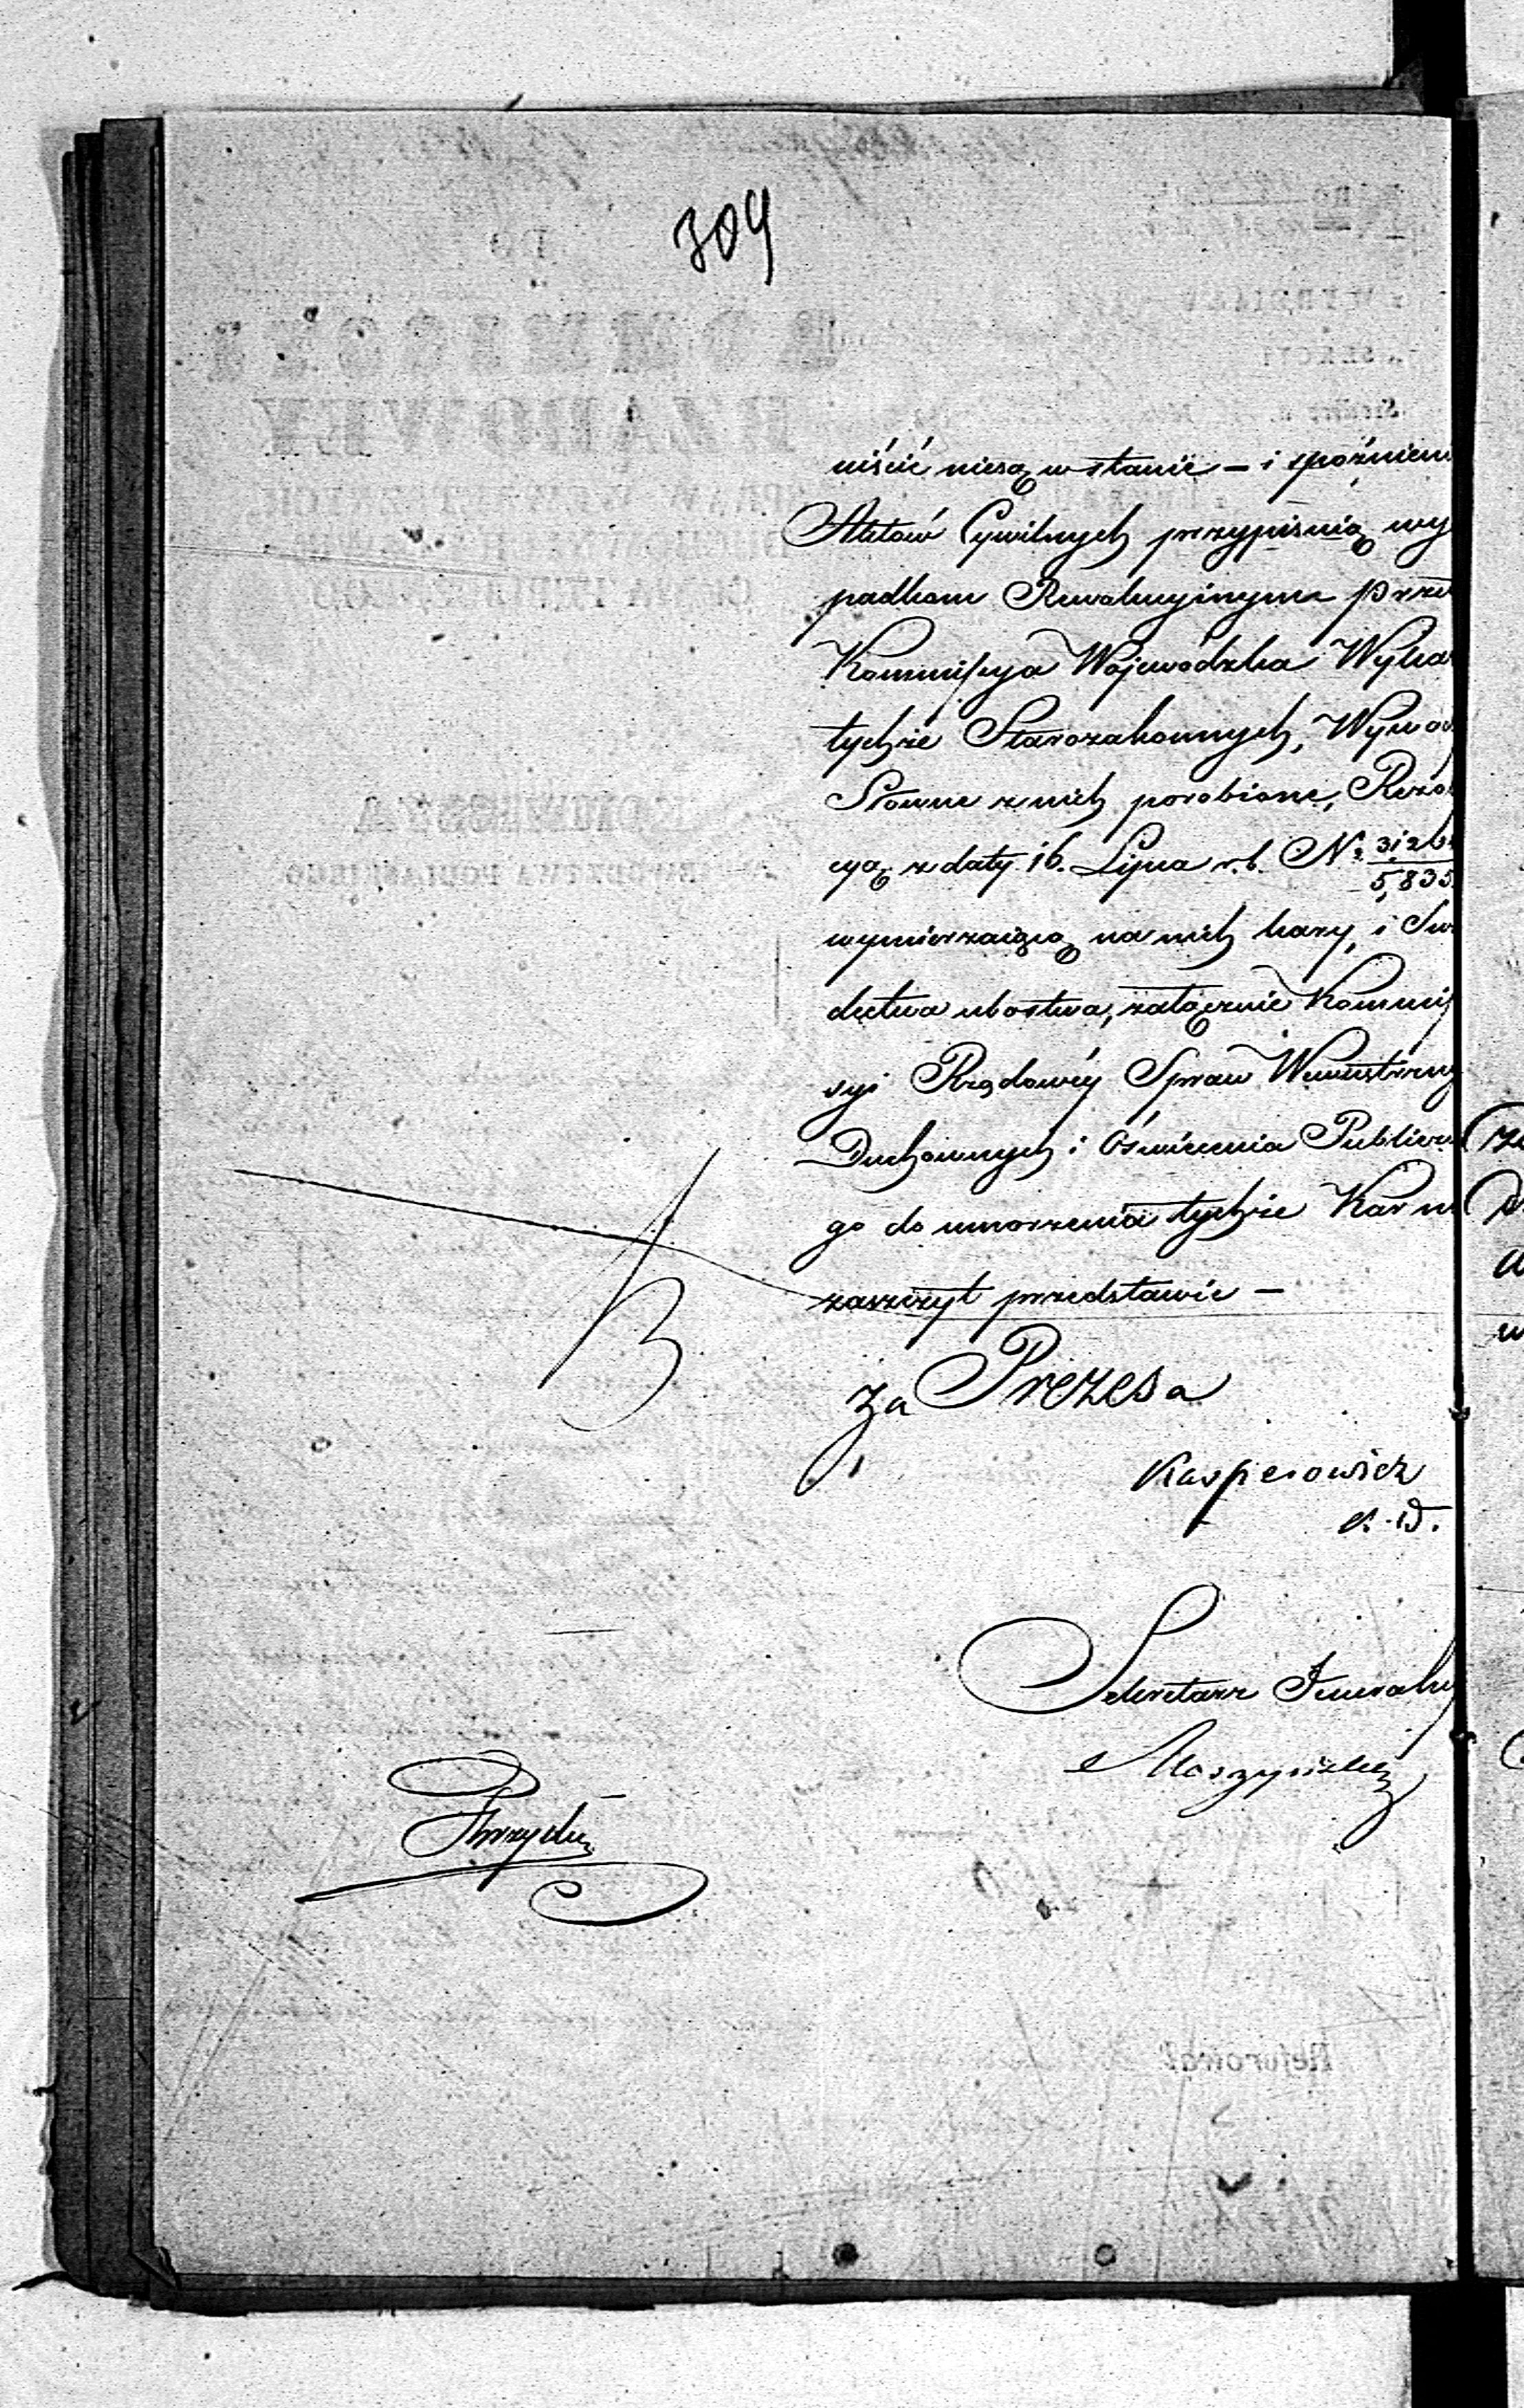 309
niścić niesą w stanie – i spóźnieni
Aktów Cywilnych przypisuią wy
padkom Rewolucyinym przeto
Kommissya Wojewódzka Wykaz
tychże Starozakonnych, Wywod
Słowne z nich porobione, Rezol
cyą z daty 16. Lipca r. b. N° 3126
5,835
wymierzaiącą na nich kary, i Swi
dectwa ubostwa, załącznie Kommis
syi Rządowéy Spraw Wewnętrzny
Duchownych i Oświecenia Publiczn
go do umorzenia tychże Kar m
zaszczyt przedstawić –
Za Prezesa
Kasperowicz
Sekretarz Jeneralny